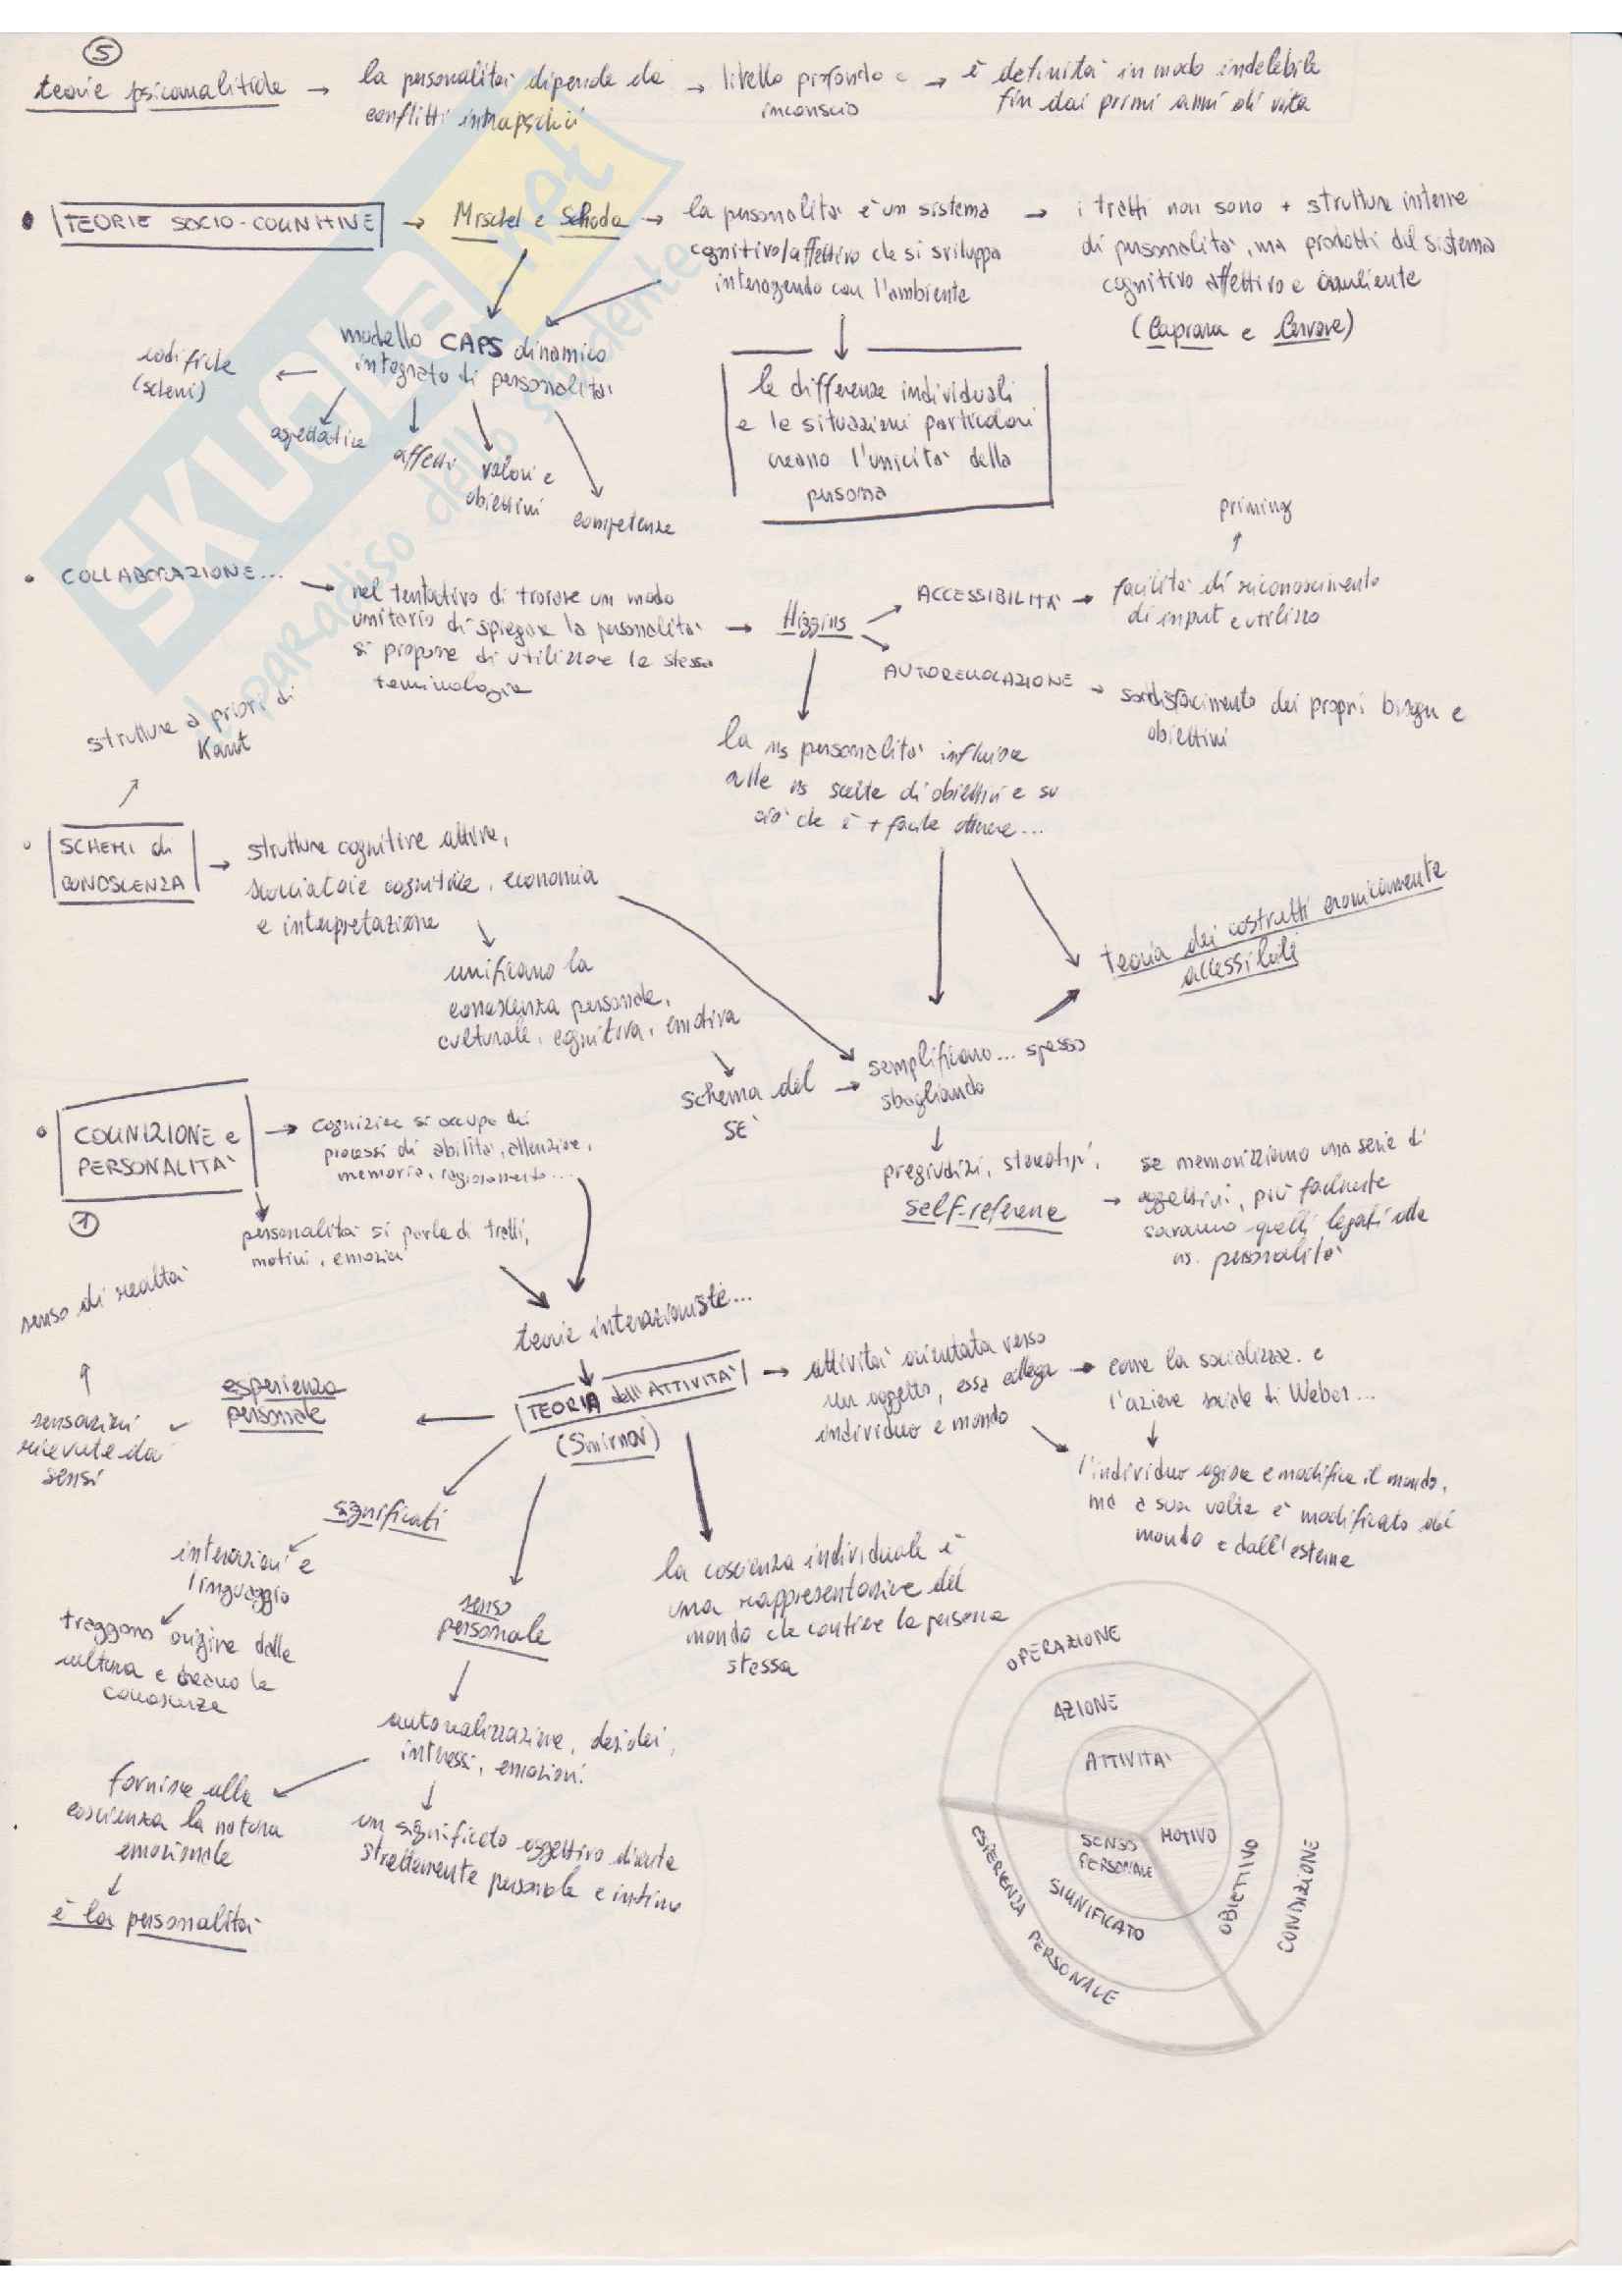 5
teorie psicoanalitiche → la personalità dipende da → livello profondo e → è definita in modo indelebile
conflitti intrapsichici
inconscio
fin dai primi anni di vita
• TEORIE SOCIO-COGNITIVE → Mischel e Schoda → la personalità è un sistema → i tratti non sono + strutture interne
cognitivo/affettivo che si sviluppa
interagendo con l'ambiente
di personalità, ma prodotti del sistema
cognitivo affettivo e ambiente
(Caprara e Cervone)
modello CAPS dinamico
integrato di personalità
codifiche
(schemi)
aspettative
affetti
valori e
obiettivi
competenze
le differenze individuali
e le situazioni particolari
creano l'unicità della
persona
• COLLABORAZIONE...
nel tentativo di trovare un modo
unitario di spiegare la personalità
si propone di utilizzare la stessa
terminologia
→ Higgins
ACCESSIBILITÀ → facilità di riconoscimento
di input e utilizzo
priming
AUTOREGOLAZIONE → soddisfacimento dei propri bisogni e
obiettivi
la ns personalità influisce
alle ns scelte di obiettivi e su
ciò che è + facile ottenere...
strutture a priori di
Kant
• SCHEMI di
CONOSCENZA
→ strutture cognitive attive,
scorciatoie cognitive, economia
e interpretazione
unificano la
conoscenza personale,
culturale, cognitiva, emotiva
teoria dei costrutti cronicamente
accessibili
schema del
SÈ
→ semplificano... spesso
sbagliando
pregiudizi, stereotipi,
self-reference
→ se memorizziamo una serie di
aggettivi, più facilmente
saranno quelli legati alla
ns. personalità
• COGNIZIONE e
PERSONALITA'
1
→ cognizione si occupa dei
processi di abilità, attenzione,
memoria, ragionamento...
personalità si parla di tratti,
motivi, emozioni
teorie interazioniste...
TEORIA dell'ATTIVITA'
(Smirnov)
→ attività orientata verso
un oggetto, essa collega
individuo e mondo
→ come la socializzaz. e
l'azione sociale di Weber...
l'individuo agisce e modifica il mondo,
ma a sua volta è modificato dal
mondo e dall'esterno
senso di realtà
sensazioni
ricevute dai
sensi
esperienza
personale
significati
interazioni e
linguaggio
traggono origine dalla
cultura e creano le
conoscenze
senso
personale
autorealizzazione, desideri,
interessi, emozioni
fornisce alla
coscienza la natura
emozionale
è la personalità
un significato oggettivo diventa
strettamente personale e intimo
la coscienza individuale è
una rappresentazione del
mondo che contiene la persona
stessa
OPERAZIONE
AZIONE
ATTIVITA'
SENSO
PERSONALE
MOTIVO
SIGNIFICATO
OBIETTIVO
CONDIZIONE
ESPERIENZA PERSONALE
SKUOLA.net
il paradiso dello studente